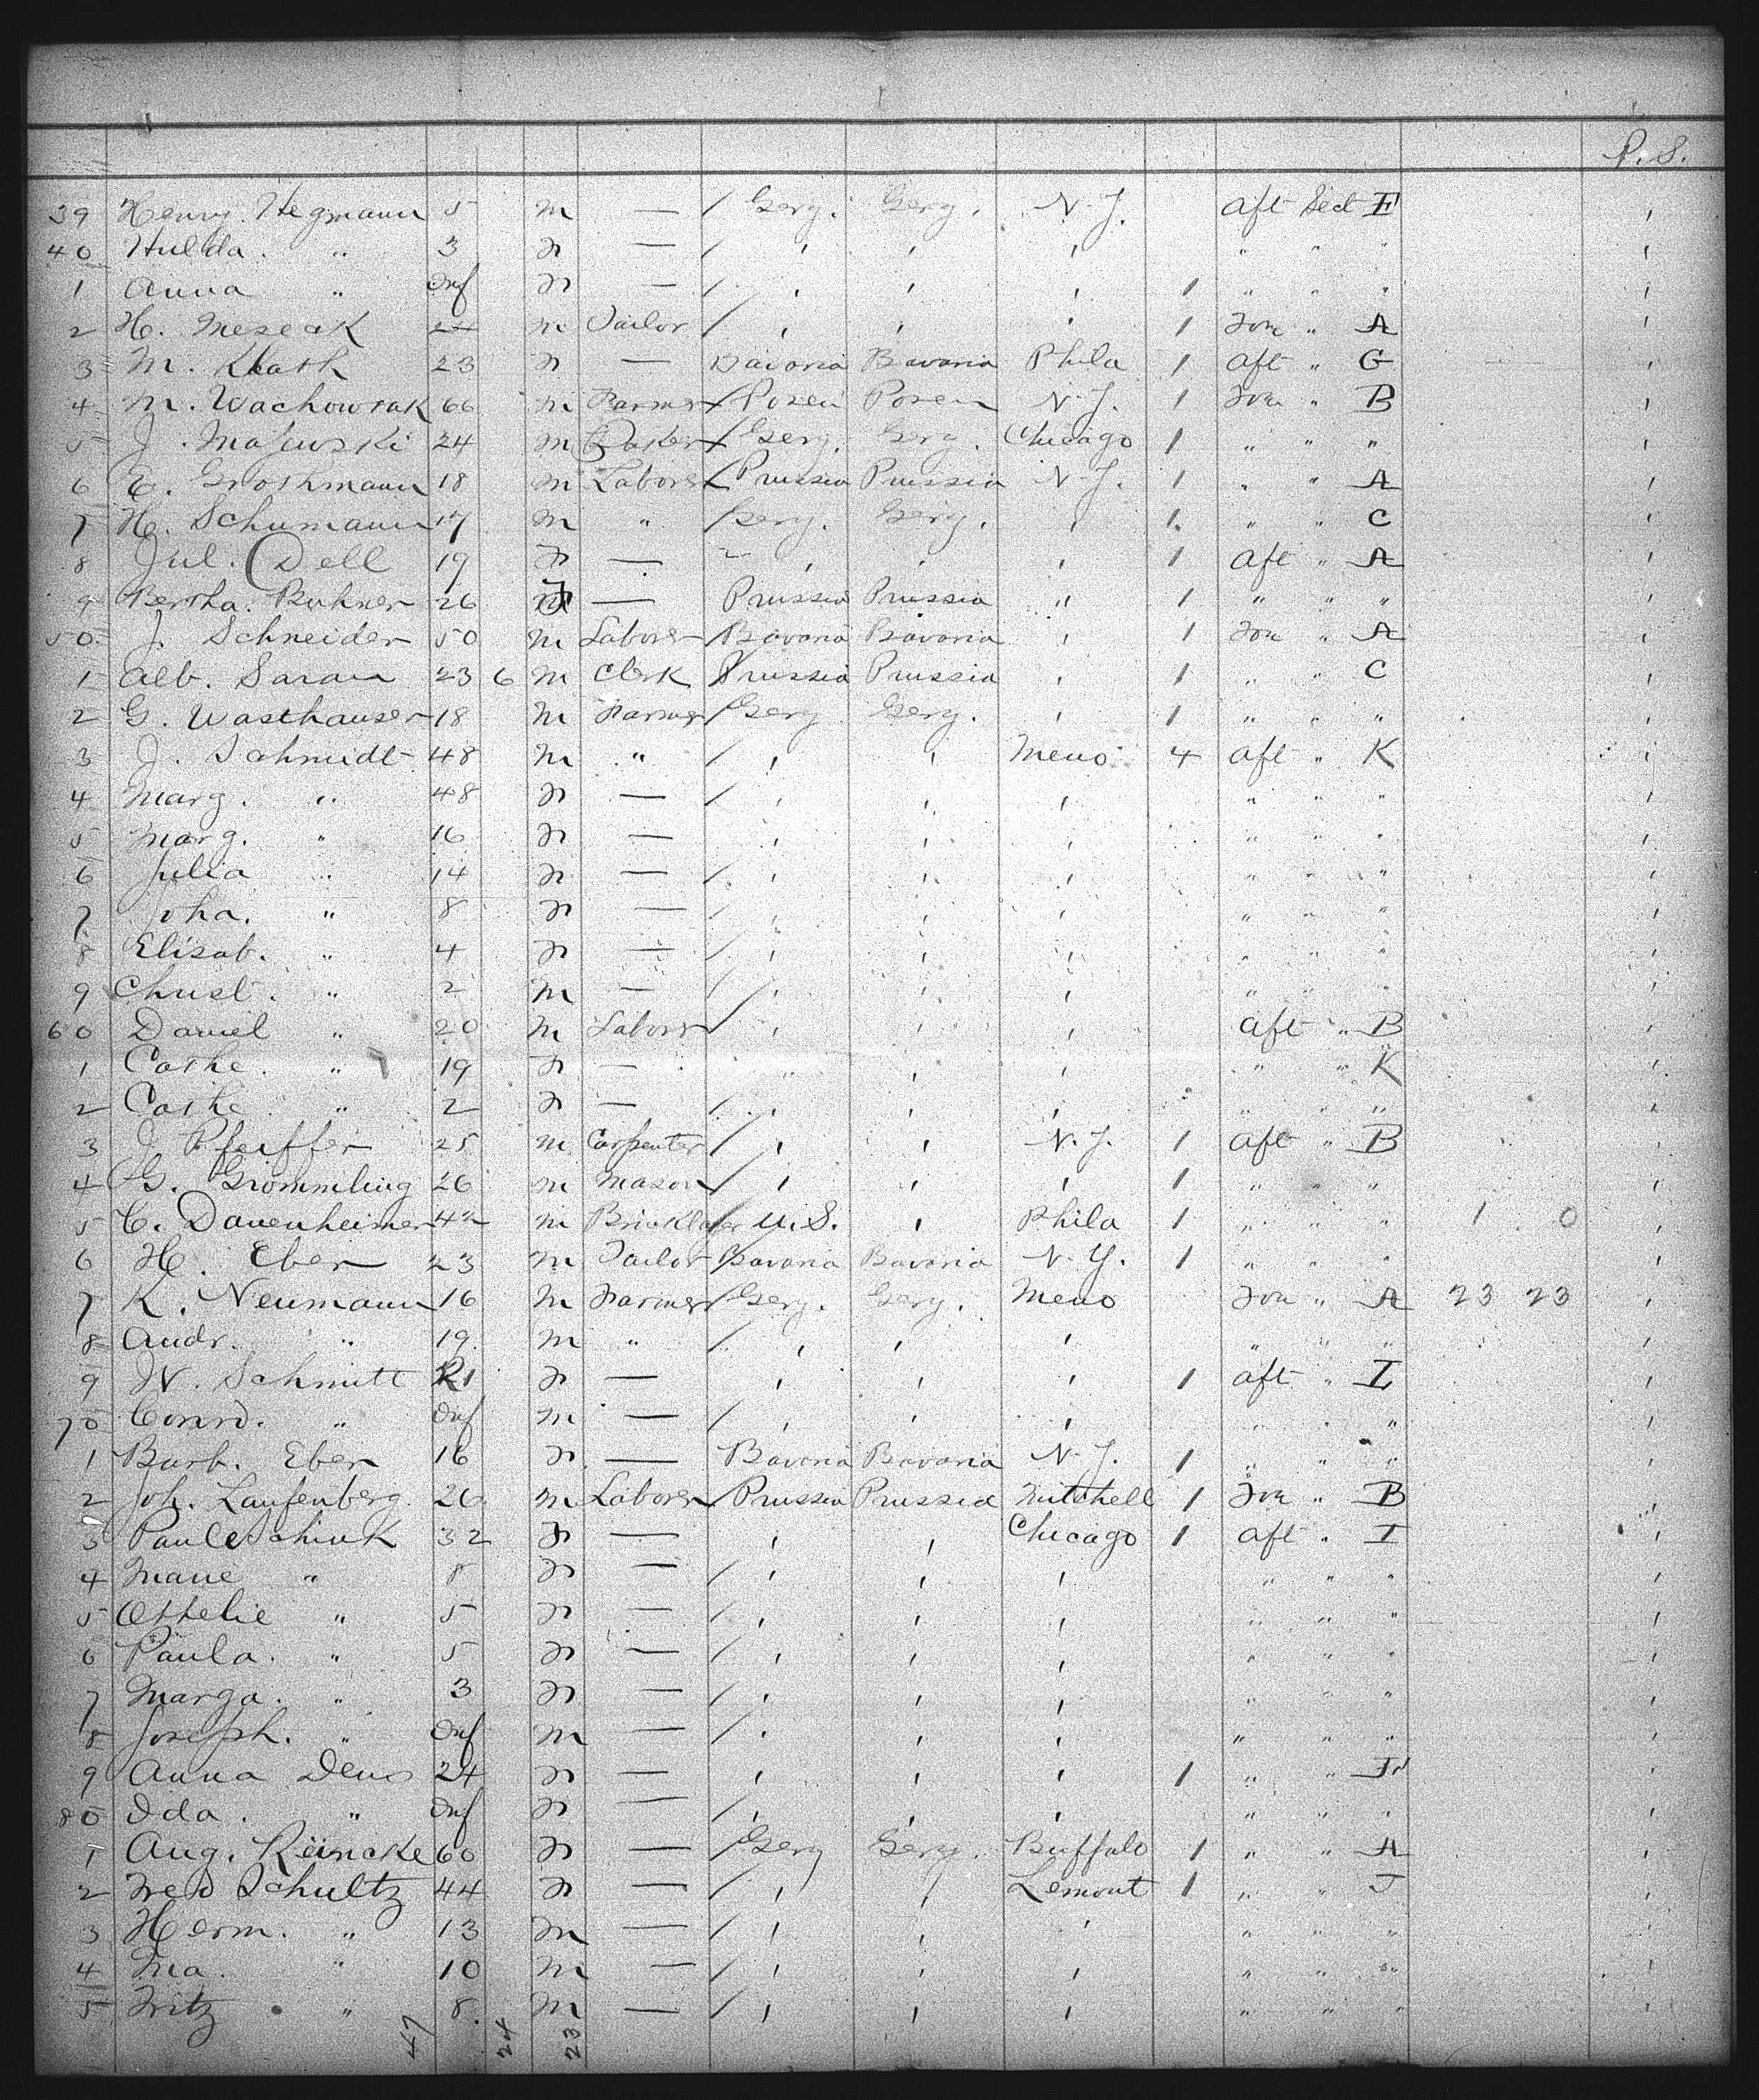 P. S.
39 Henry Hegmann 5 m — / Gery. Gery. N. Y. aft Sect E
40 Hulda. " 3 F — / " " "
1 Anna " Inf F — / 1 " " "
2 H. Meseck m Tailor / 1 For " A
3 M. 23 F — Bavaria Bavaria Phila 1 aft " G
4 M. Wachowiak 66 m Farmer / Posen Posen N. Y. 1 For " B
5 J. Majewski 24 m Baker / Gery. Gery. Chicago 1 " " "
6 E. Grothmann 18 m Laborer / Prussia Prussia N. Y. 1 " " A
7 H. Schumann 17 m " / Gery. Gery. 1 " " C
8 Jul. Dell 19 F — 1 aft " A
9 Bertha. Buhner 26 F — Prussia Prussia " 1 " " "
50 J. Schneider 50 m Laborer / Bavaria Bavaria 1 For " A
1 Alb. Saran 23 6 m Clerk / Prussia Prussia 1 " " C
2 G. Wasthauser 18 m Farmer / Gery Gery. 1 " " "
3 J. Schmidt 48 m " / Meno 4 aft " K
4 Marg. " 48 F — / " " "
5 Marg. " 16 F — " " "
6 Julia " 14 F — / " " "
7 Joha. " 8 F — / " " "
8 Elisab. " 4 F — / " " "
9 Christ. " 2 m — / " " "
60 Daniel " 20 m Laborer / aft " B
1 Cathe. " 19 F — " " K
2 Cathe. " 2 F — / " " "
3 J. Pfeiffer 25 m Carpenter / N. Y. 1 aft " B
4 G. Grommling 26 m Mason / 1 " " "
5 C. Dauenheimer 42 m Bricklayer / U. S. Phila 1 " " " 1 0
6 H. Eber 23 m Tailor / Bavaria Bavaria N. Y. 1 " " "
7 K. Neumann 16 m Farmer / Gery. Gery. Meno For " A 23 23
8 Andr. " 19 m " / " " "
9 W. Schmitt 21 F — 1 aft " I
70 Conrd. " Inf m — / " " "
1 Barb. Eber 16 F — Bavaria Bavaria N. Y. 1 " " "
2 Joh. Laufenberg 26 m Laborer / Prussia Prussia Mitchell 1 For " B
3 Paul Schink 32 F — Chicago 1 aft " I
4 Marie " 8 F — / " " "
5 Ottelie " 5 F — / " " "
6 Paula. " 5 F — / " " "
7 Marga. " 3 F — / " " "
8 Joseph. " Inf m — / " " "
9 Anna 24 F — 1 " "
80 Ida. " Inf F — / " " "
1 Aug. Reincke 60 F — / Gery Gery. Buffalo 1 " " A
2 Fred Schultz 44 F — / Lemont 1 " " J
3 Herm. " 13 m — / " " "
4 Ma. " 10 m — / " " "
5 Fritz " 8 m — / " " "
47 24 23